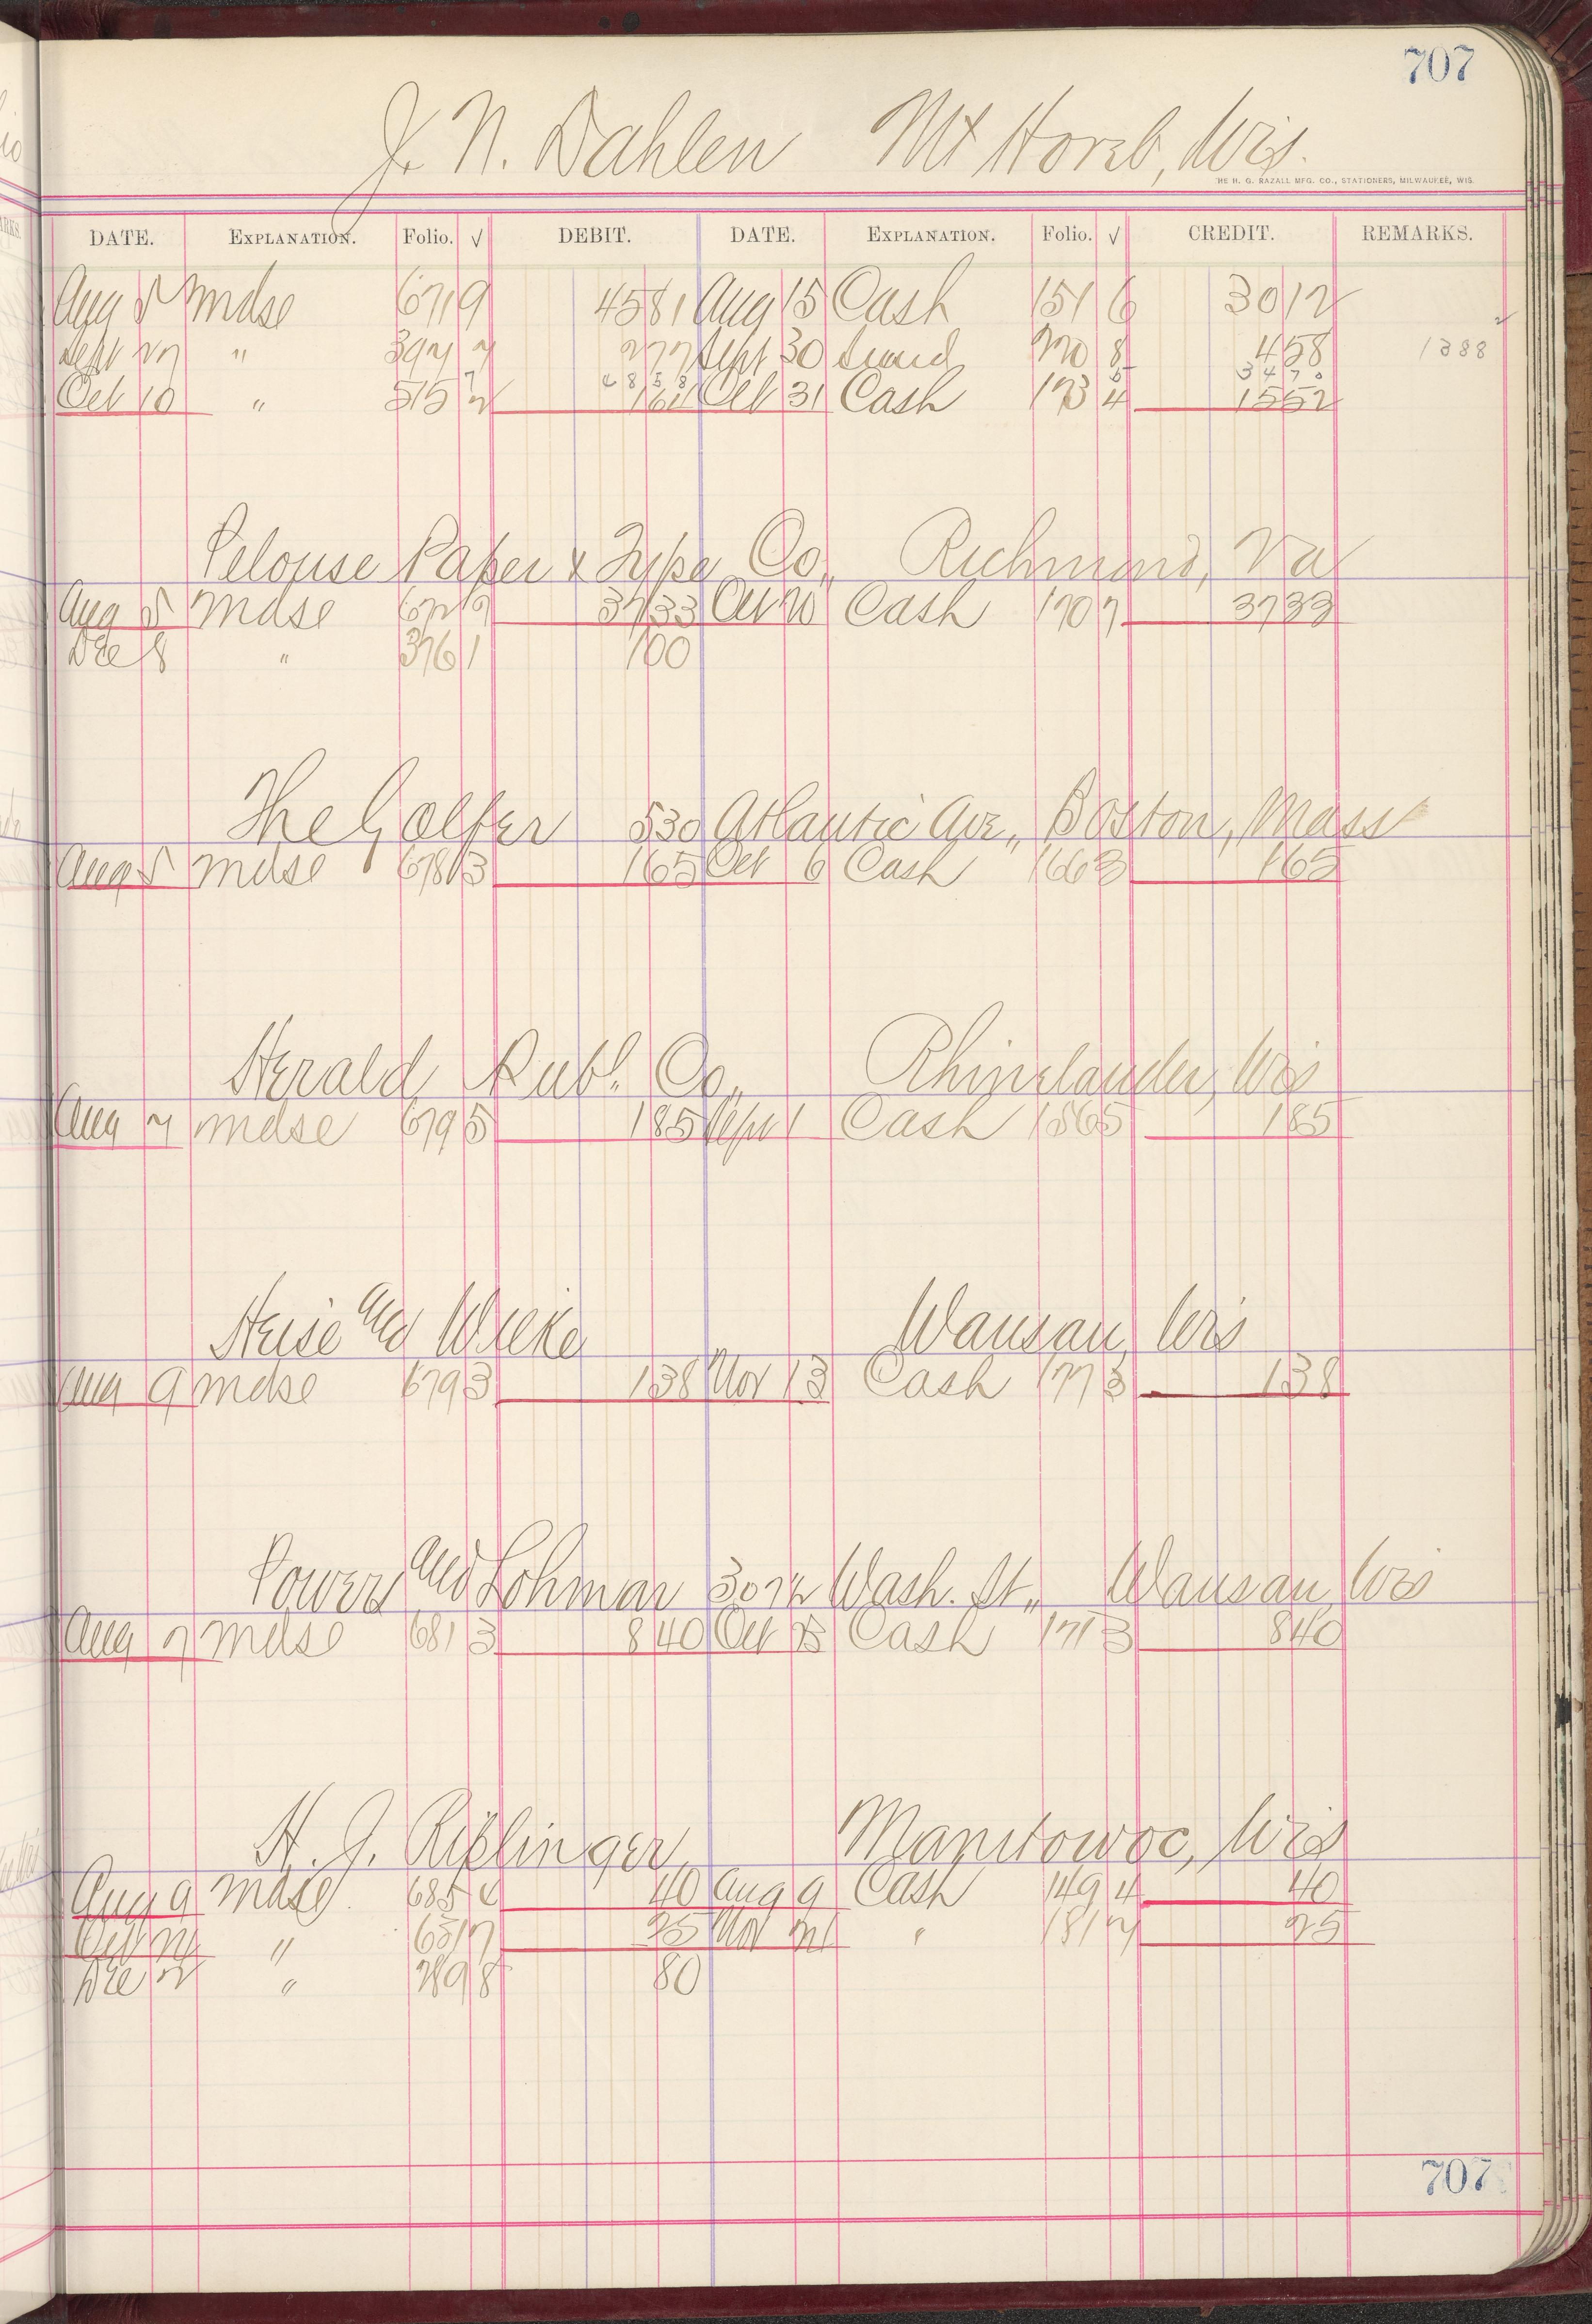 707
J. N. Dahlen Mt Horeb, Wis.
THE H. G. RAZALL MFG. CO., STATIONERS, MILWAUKEE, WIS.
DATE. EXPLANATION. Folio. √ DEBIT. DATE. EXPLANATION. Folio. √ CREDIT. REMARKS.
Aug 5 Mdse 671 9 4581 Aug 15 Cash 151 6 3012
Sept 27 " 392 2 277 Sept 30 Sund 220 8 458 1388
4858 3470
Oct 10 " 515 2 164 Oct 31 Cash 173 4 1552
Pelouse Paper & Type Co., Richmond, Va
Aug 5 Mdse 672 9 3733 Oct 20 Cash 170 7 3733
Dec 8 " 376 1 100
The Golfer 530 Atlantic Ave., Boston, Mass
Aug 5 Mdse 678 3 165 Oct 6 Cash 166 3 165
Herald Publ. Co., Rhinelander, Wis
Aug 7 Mdse 679 5 185 Sept 1 Cash 156 5 185
Heise and Wilke Wausau, Wis
Aug 9 Mdse 679 3 138 Nov 13 Cash 177 3 138
Powers and Lohmar 307½ Wash. St., Wausau, Wis
Aug 7 Mdse 681 3 840 Oct 23 Cash 171 3 840
H. J. Riplinger Manitowoc, Wis
Aug 9 Mdse 685 6 40 Aug 9 Cash 149 4 40
Oct 21 " 651 7 25 Nov 21 " 181 2 25
Dec 2 " 289 8 80
707